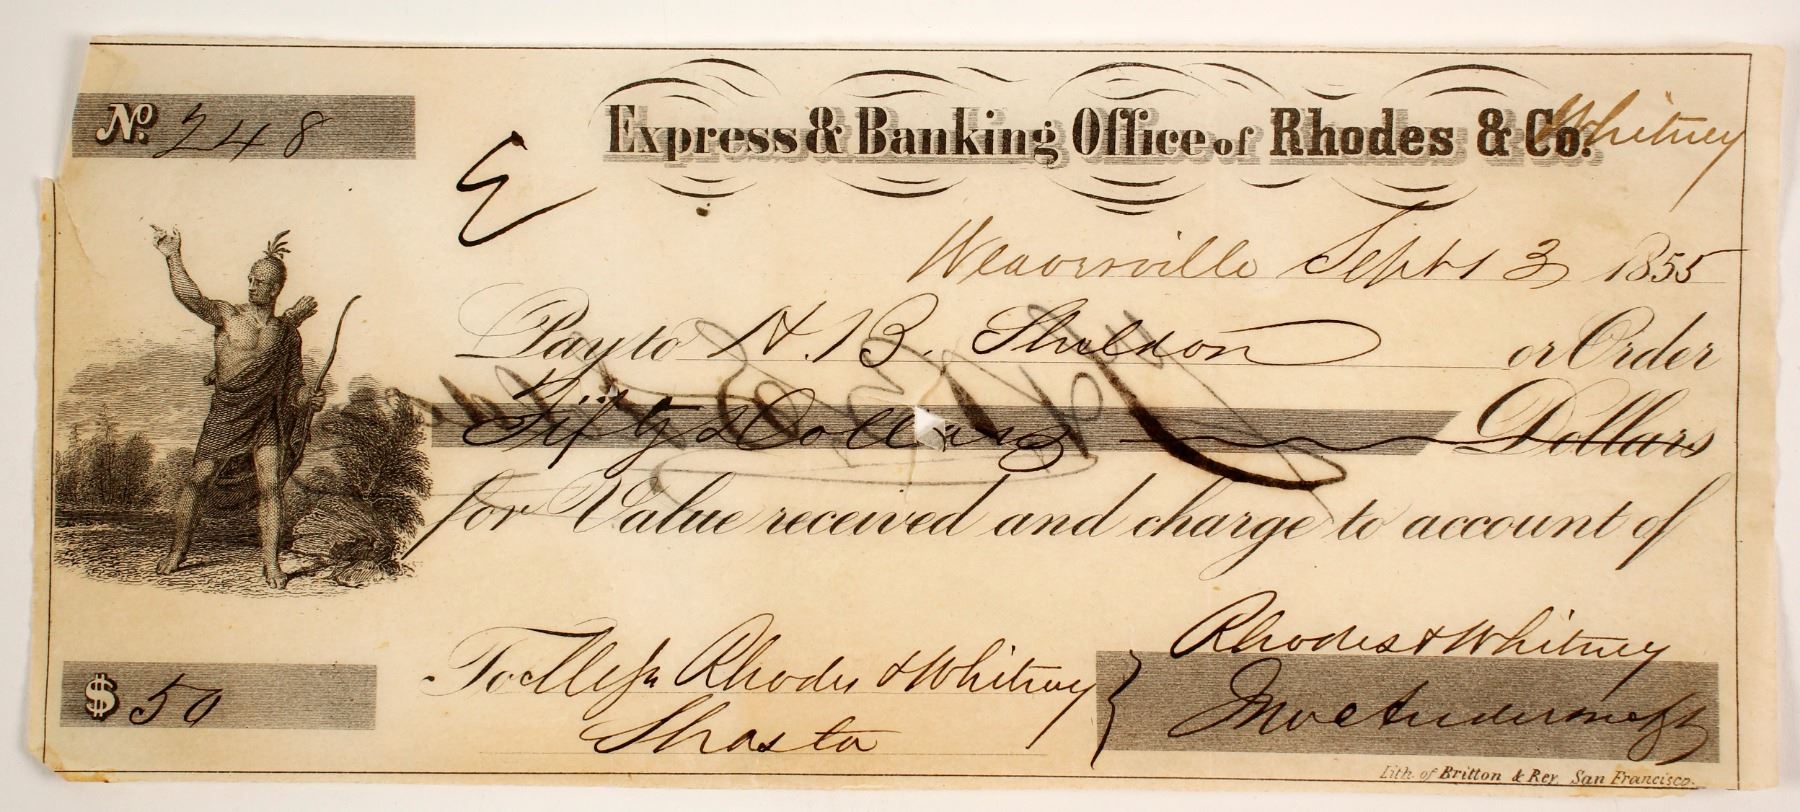 No. 248
Express & Banking Office of Rhodes & Co. Whitney
Weaverville Sept 3 1855
Pay to H. B. Sheldon or Order
Fifty Dollars Dollars
for Value received and charge to account of
To Mess Rhodes & Whitney
Shasta
Rhodes & Whitney
$ 50
Lith of Britton & Rey San Francisco.